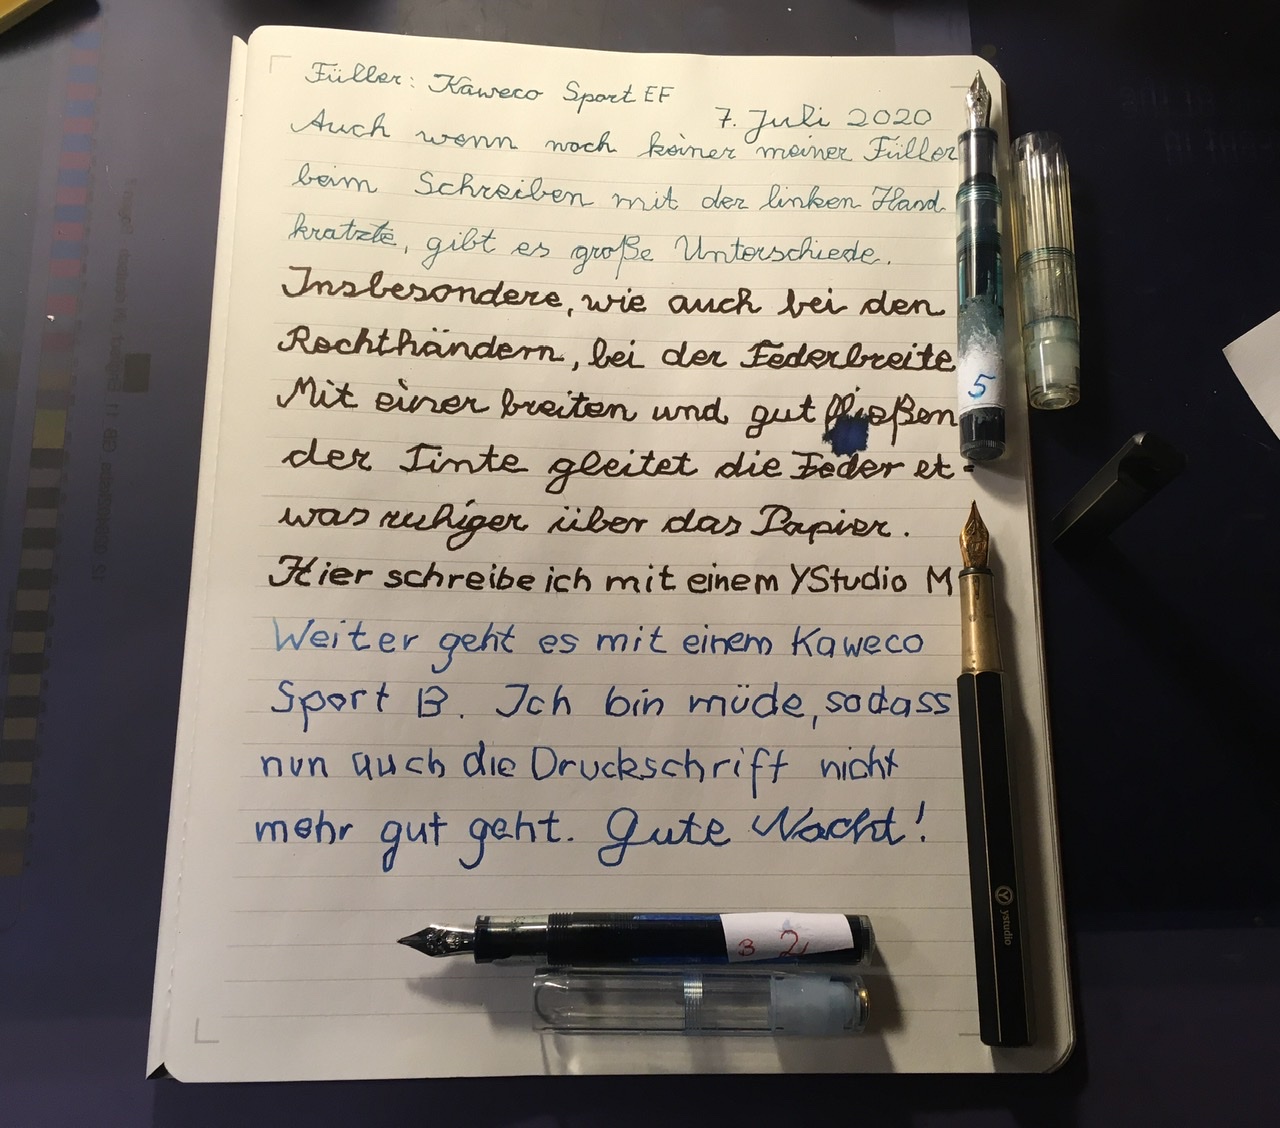 Füller: Kaweco Sport EF
7. Juli 2020
Auch wenn noch keiner meiner Füller
beim Schreiben mit der linken Hand
kratzte, gibt es große Unterschiede.
Insbesondere, wie auch bei den
Rechthändern, bei der Federbreite
Mit einer breiten und gut fließen
der Tinte gleitet die Feder et-
was ruhiger über das Papier.
Hier schreibe ich mit einem YStudio M
Weiter geht es mit einem Kaweco
Sport B. Ich bin müde, sodass
nun auch die Druckschrift nicht
mehr gut geht. Gute Nacht!
5
ystudio
B 2